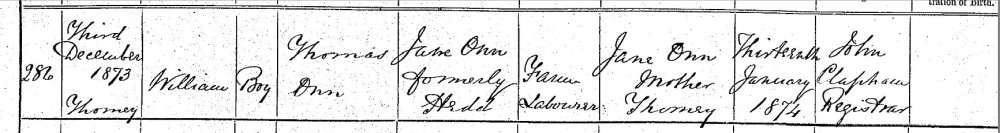 tration of Birth.
286
Third
December
1873
Thorney
William
Boy
Thomas
Onn
Jane Onn
formerly
Farm
Labourer
Jane Onn
Mother
Thorney
Thirteenth
January
1874
John
Clapham
Registrar